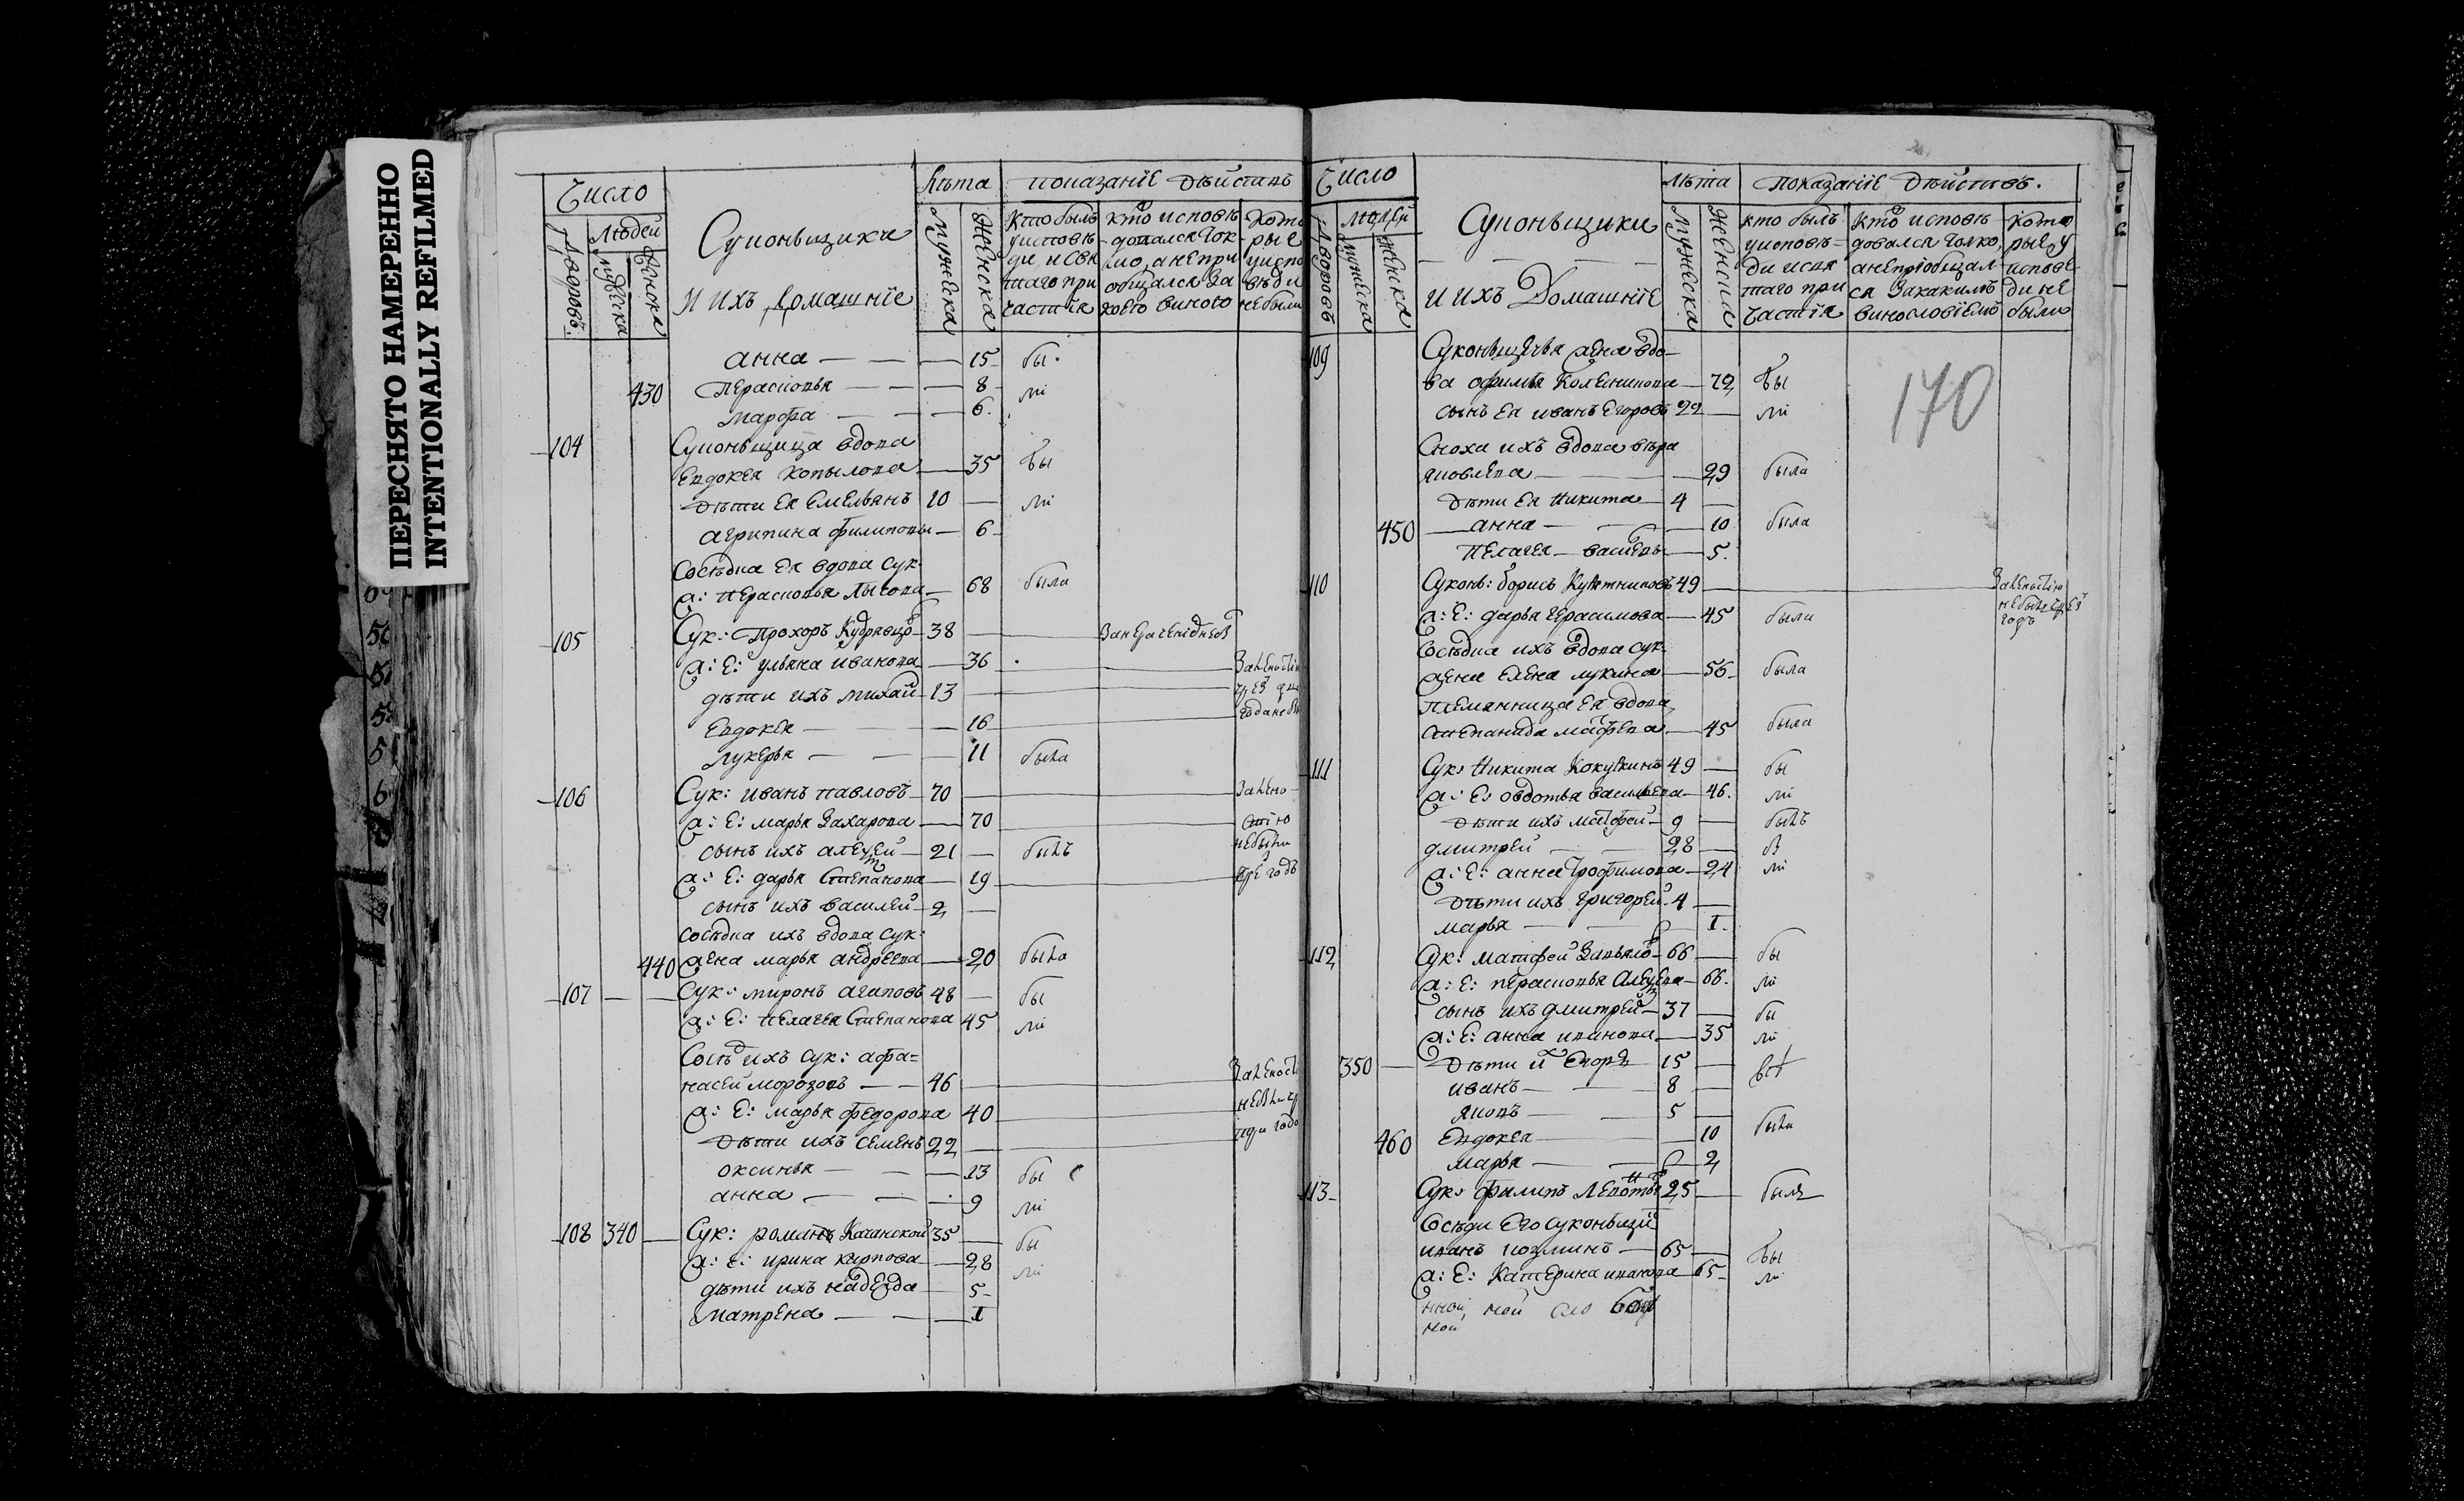 ПЕРЕСНЯТО НАМЕРЕННО
INTENTIONALLY REFILMED
Число
Людей
Дворовъ
мужеска
женска
Суконьщики
и ихъ домашніе
Лѣта
мужеска
женска
показаніе дѣйствъ
кто былъ
у исповѣ
ди и свя
таго при
частія
кто исповѣ
довался ток
мо, а не при
общался за
коею виною
кото
рые
у испо
вѣди
не были
анна — — — 15 бы
430 Перасковья — — — 8 ли
марфа — — — 6
104 Суконьщица вдова
Евдокея Копылова — 35 бы
дѣти ея Емельянъ 10 — ли
агрипина филиповы — 6
Сосѣдка ея вдова сук:
ж: Перасковья Лысова — 68 была
105 Сук: Прохоръ Кудрявцо 38 —
ж: Е: ульяна иванова — 36
дѣти ихъ михай 13 —
Евдокея — — — 16
лукерья — — — 11 была
106 Сук: иванъ павловъ 70 —
ж: Е: марья Захарова — 70
сынъ ихъ алеѯей 21 — былъ
ж: Е: дарья Степанова — 19
сынъ ихъ василей 2 —
сосѣдка ихъ вдова сук:
440 жена марья андреева — 20 была
107 — — Сук: миронъ агаповъ 48 — бы
ж: Е: пелагея Степанова 45 ли
Сосѣд ихъ сук: афа=
насей морозовъ — — 46 —
ж: Е: марья федорова 40
дѣти ихъ семенъ 22 —
оксинья — — — 13 бы
анна — — — 9 ли
108 340 — Сук: романъ Качанской 35 — бы
ж: Е: ирина карпова — 28 ли
дѣти ихъ надежда — 5
матрена — — — 1
Число
людей
Дворовъ
мужеска
женска
Суконьщики
и ихъ Домашніе
лѣта
мужеска
женска
показаніе дѣйствъ.
кто былъ
у исповѣ=
ди и свя
таго при
частія
кто исповѣ
довался токмо,
а не пріобщал
ся за какимъ
винословіемъ
кото
рые у
исповѣ
ди не
были
170
109 Суконьщичья жена вдо
ва офимья Коленикова — 72 бы
сынъ ея иванъ Егоровъ 22 — ли
Сноха ихъ вдова вѣра
яковлева — — 29 была
дѣти ея никита — 4 —
450 — анна — — — 10 была
пелагея — васильевы — 5
110 Суконь: борисъ 49 —
ж: Е: дарья герасимова — 45 была
Сосѣдка ихъ вдова сук:
жена елена лукина — 56 была
племянница ея вдова
степанида матфева — 45 была
111 Сук: никита Кокушкинъ 49 — бы
ж: Е: овдотья васильева — 46. ли
дѣти ихъ матфей — 9 — былъ
дмитрей — — 28 — бы
ж: Е: анна трофимова — 24 ли
дѣти ихъ григорей 4 —
марья — — 1
112 Сук: матфей 66 — бы
ж: Е: перасковья алеѯева — 66. ли
сынъ ихъ дмитрей 37 — бы
ж: Е: анна иванова — 35 ли
350 — дѣти их Егоръ 15 —
иванъ — — 8 —
яковъ — — 5 —
460 Евдокея — — 10 были
марья — — 2
113 Сук: филипъ 25 — былъ
Сосѣди Его суконьщи
иванъ козминъ — 65 — бы
ж: Е: Катерина иванова 65 ли